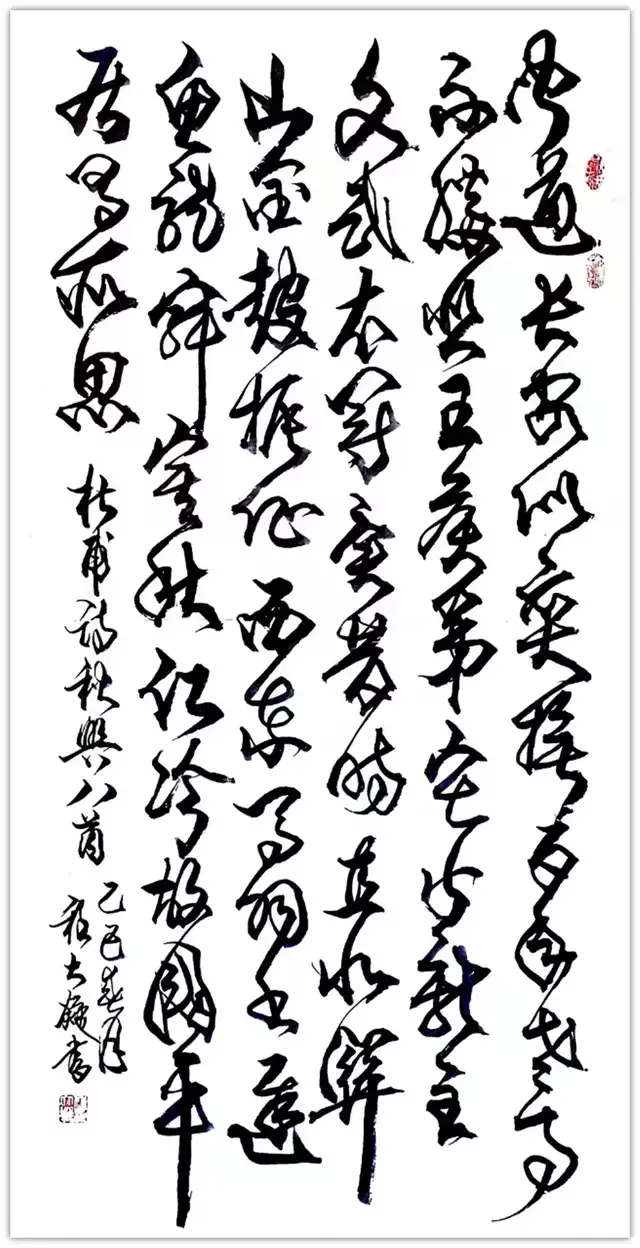 闻道长安似奕棋百年世事
不勝悲王侯第宅皆新主
文武衣冠異昔時直北關
山金鼓振征西車馬羽書遲
魚龍寂寞秋江冷故國平
居有所思
杜甫詩秋興八首
乙巳春月
大 書